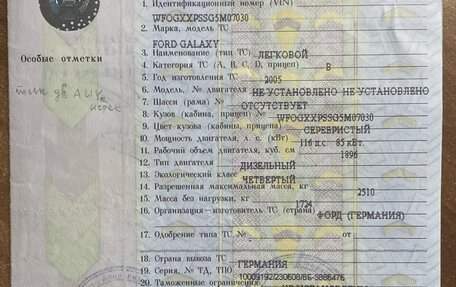 1. Идентификационный номер (VIN)
WFOGXXPSSG5M07030
2. Марка, модель ТС
FORD GALAXY
3. Наименование (тип ТС) ЛЕГКОВОЙ
4. Категория ТС (А, В, С, D, прицеп) B
5. Год изготовления ТС 2005
6. Модель, № двигателя НЕ УСТАНОВЛЕНО НЕ УСТАНОВЛЕНО
7. Шасси (рама) № ОТСУТСТВУЕТ
8. Кузов (кабина, прицеп) № WFOGXXPSSG5M07030
9. Цвет кузова (кабины, прицепа) СЕРЕБРИСТЫЙ
10. Мощность двигателя, л. с. (кВт) 116 л.с 85 кВт.
11. Рабочий объем двигателя, куб. см 1896
12. Тип двигателя ДИЗЕЛЬНЫЙ
13. Экологический класс ЧЕТВЕРТЫЙ
14. Разрешенная максимальная масса, кг 2510
15. Масса без нагрузки, кг 1724
16. Организация—изготовитель ТС (страна) ФОРД (ГЕРМАНИЯ)
17. Одобрение типа ТС №
18. Страна вывоза ТС ГЕРМАНИЯ
19. Серия, № ТД, ТПО
20. Таможенные ограничения
Особые отметки